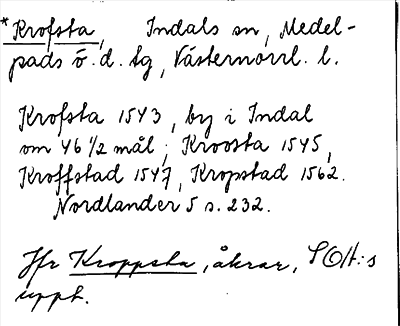 *Krofsta, Indals sn, Medel-
pads ö. d. tg, Västernorrl. l.
Krofsta 1543, by i Indal
om 46 1/2 mål; Kroosta 1545,
Kroffstad 1547, Kropstad 1562.
Nordlander 5 s. 232.
Jfr Kroppsta, åkrar, SOH:s
uppt.